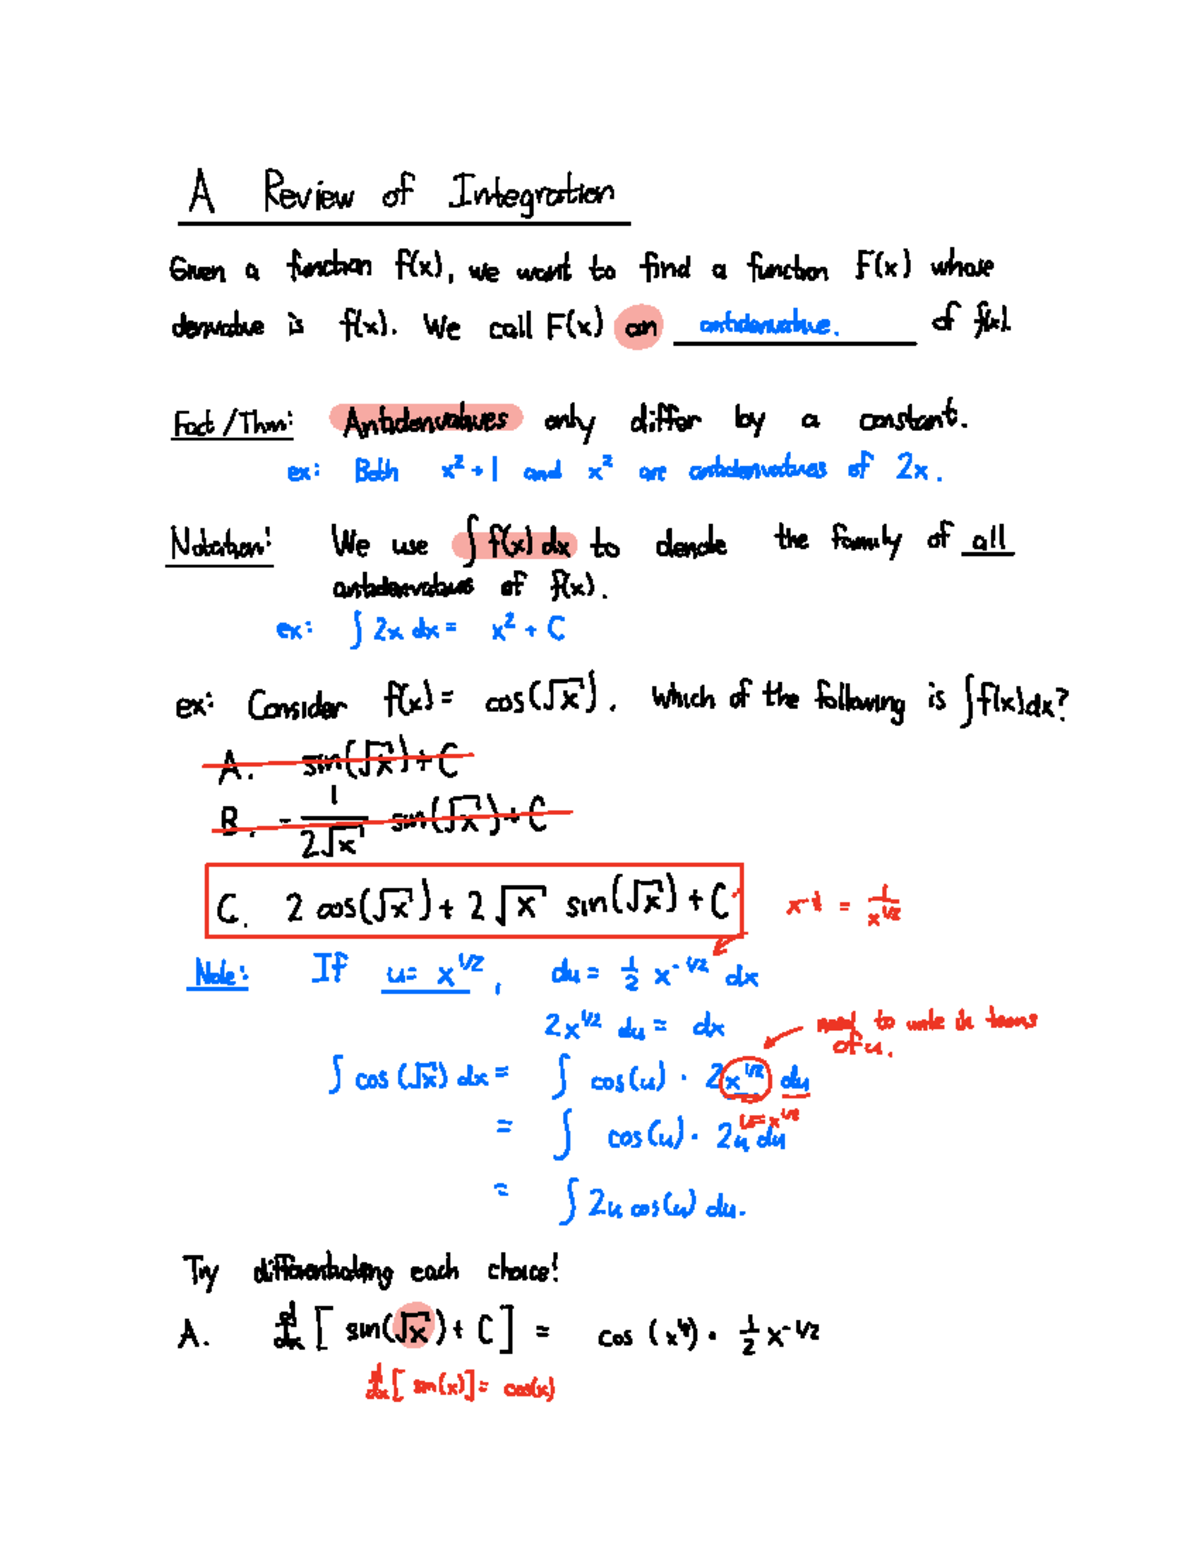 A Review of Integration
Given a function f(x), we want to find a function F(x) whose
derivative is f(x). We call F(x) an antiderivative. of f(x).
Fact/Thm: Antiderivatives only differ by a constant.
ex: Both x² + 1 and x² are antiderivatives of 2x.
Notation: We use ∫ f(x) dx to denote the family of all
antiderivatives of f(x).
ex: ∫ 2x dx = x² + C
ex: Consider f(x) = cos(√x). Which of the following is ∫f(x)dx?
A. sin(√x) + C
B. - 1/(2√x) sin(√x) + C
C. 2 cos(√x) + 2√x sin(√x) + C
x^-½ = 1/x^1/2
Note: If u = x^1/2, du = 1/2 x^-1/2 dx
2x^1/2 du = dx
need to write in terms
of u.
∫ cos(√x) dx = ∫ cos(u) · 2x^1/2 du
u = x^1/2
= ∫ cos(u) · 2u du
= ∫ 2u cos(u) du.
Try differentiating each choice!
A. d/dx [ sin(√x) + C ] = cos (x^½) · 1/2 x^-1/2
d/dx [ sin(x)] = cos(x)